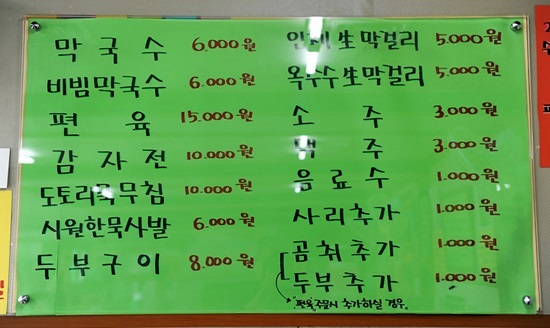 막국수 6,000원
비빔막국수 6,000원
편육 15,000원
감자전 10,000원
도토리묵무침 10,000원
시원한묵사발 6,000원
두부구이 8,000원
인제生막걸리 5,000원
옥수수生막걸리 5,000원
소주 3,000원
맥주 3,000원
음료수 1,000원
사리추가 1,000원
곰취추가 1,000원
두부추가 1,000원
*편육주문시 추가하실 경우